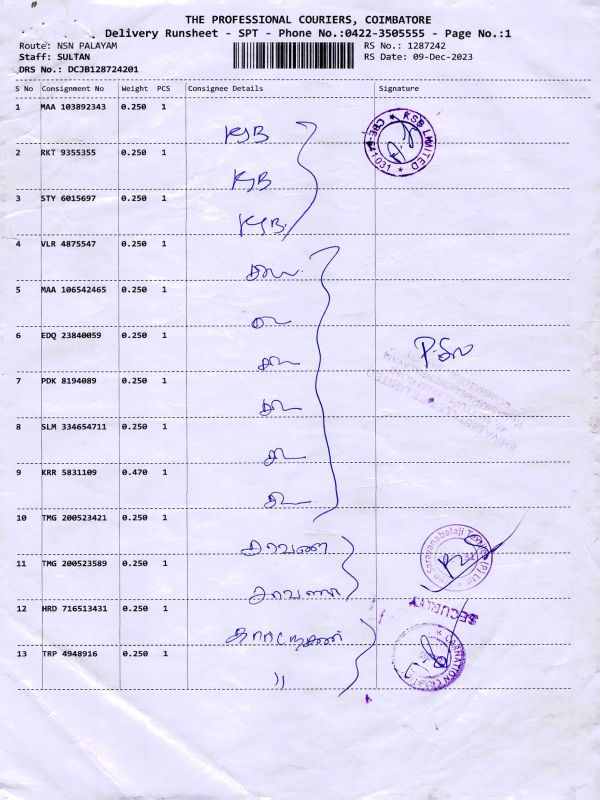 THE PROFESSIONAL COURIERS, COIMBATORE
Delivery Runsheet - SPT - Phone No.:0422-3505555 - Page No.:1
Route: NSN PALAYAM RS No.: 1287242
Staff: SULTAN RS Date: 09-Dec-2023
DRS No.: DCJB128724201
S No Consignment No Weight PCS Consignee Details Signature
1 MAA 103892343 0.250 1
KSB KSB LIMITED CBE-641031
2 RKT 9355355 0.250 1
KSB
3 STY 6015697 0.250 1
KSB.
4 VLR 4875547 0.250 1
5 MAA 106542465 0.250 1
6 EDQ 23840059 0.250 1
7 PDK 8194089 0.250 1
8 SLM 334654711 0.250 1
9 KRR 5831109 0.470 1
10 TMG 200523421 0.250 1
சரவண
11 TMG 200523589 0.250 1
சரவண
12 HRD 716513431 0.250 1 SECURITY
13 TRP 4948916 0.250 1
"